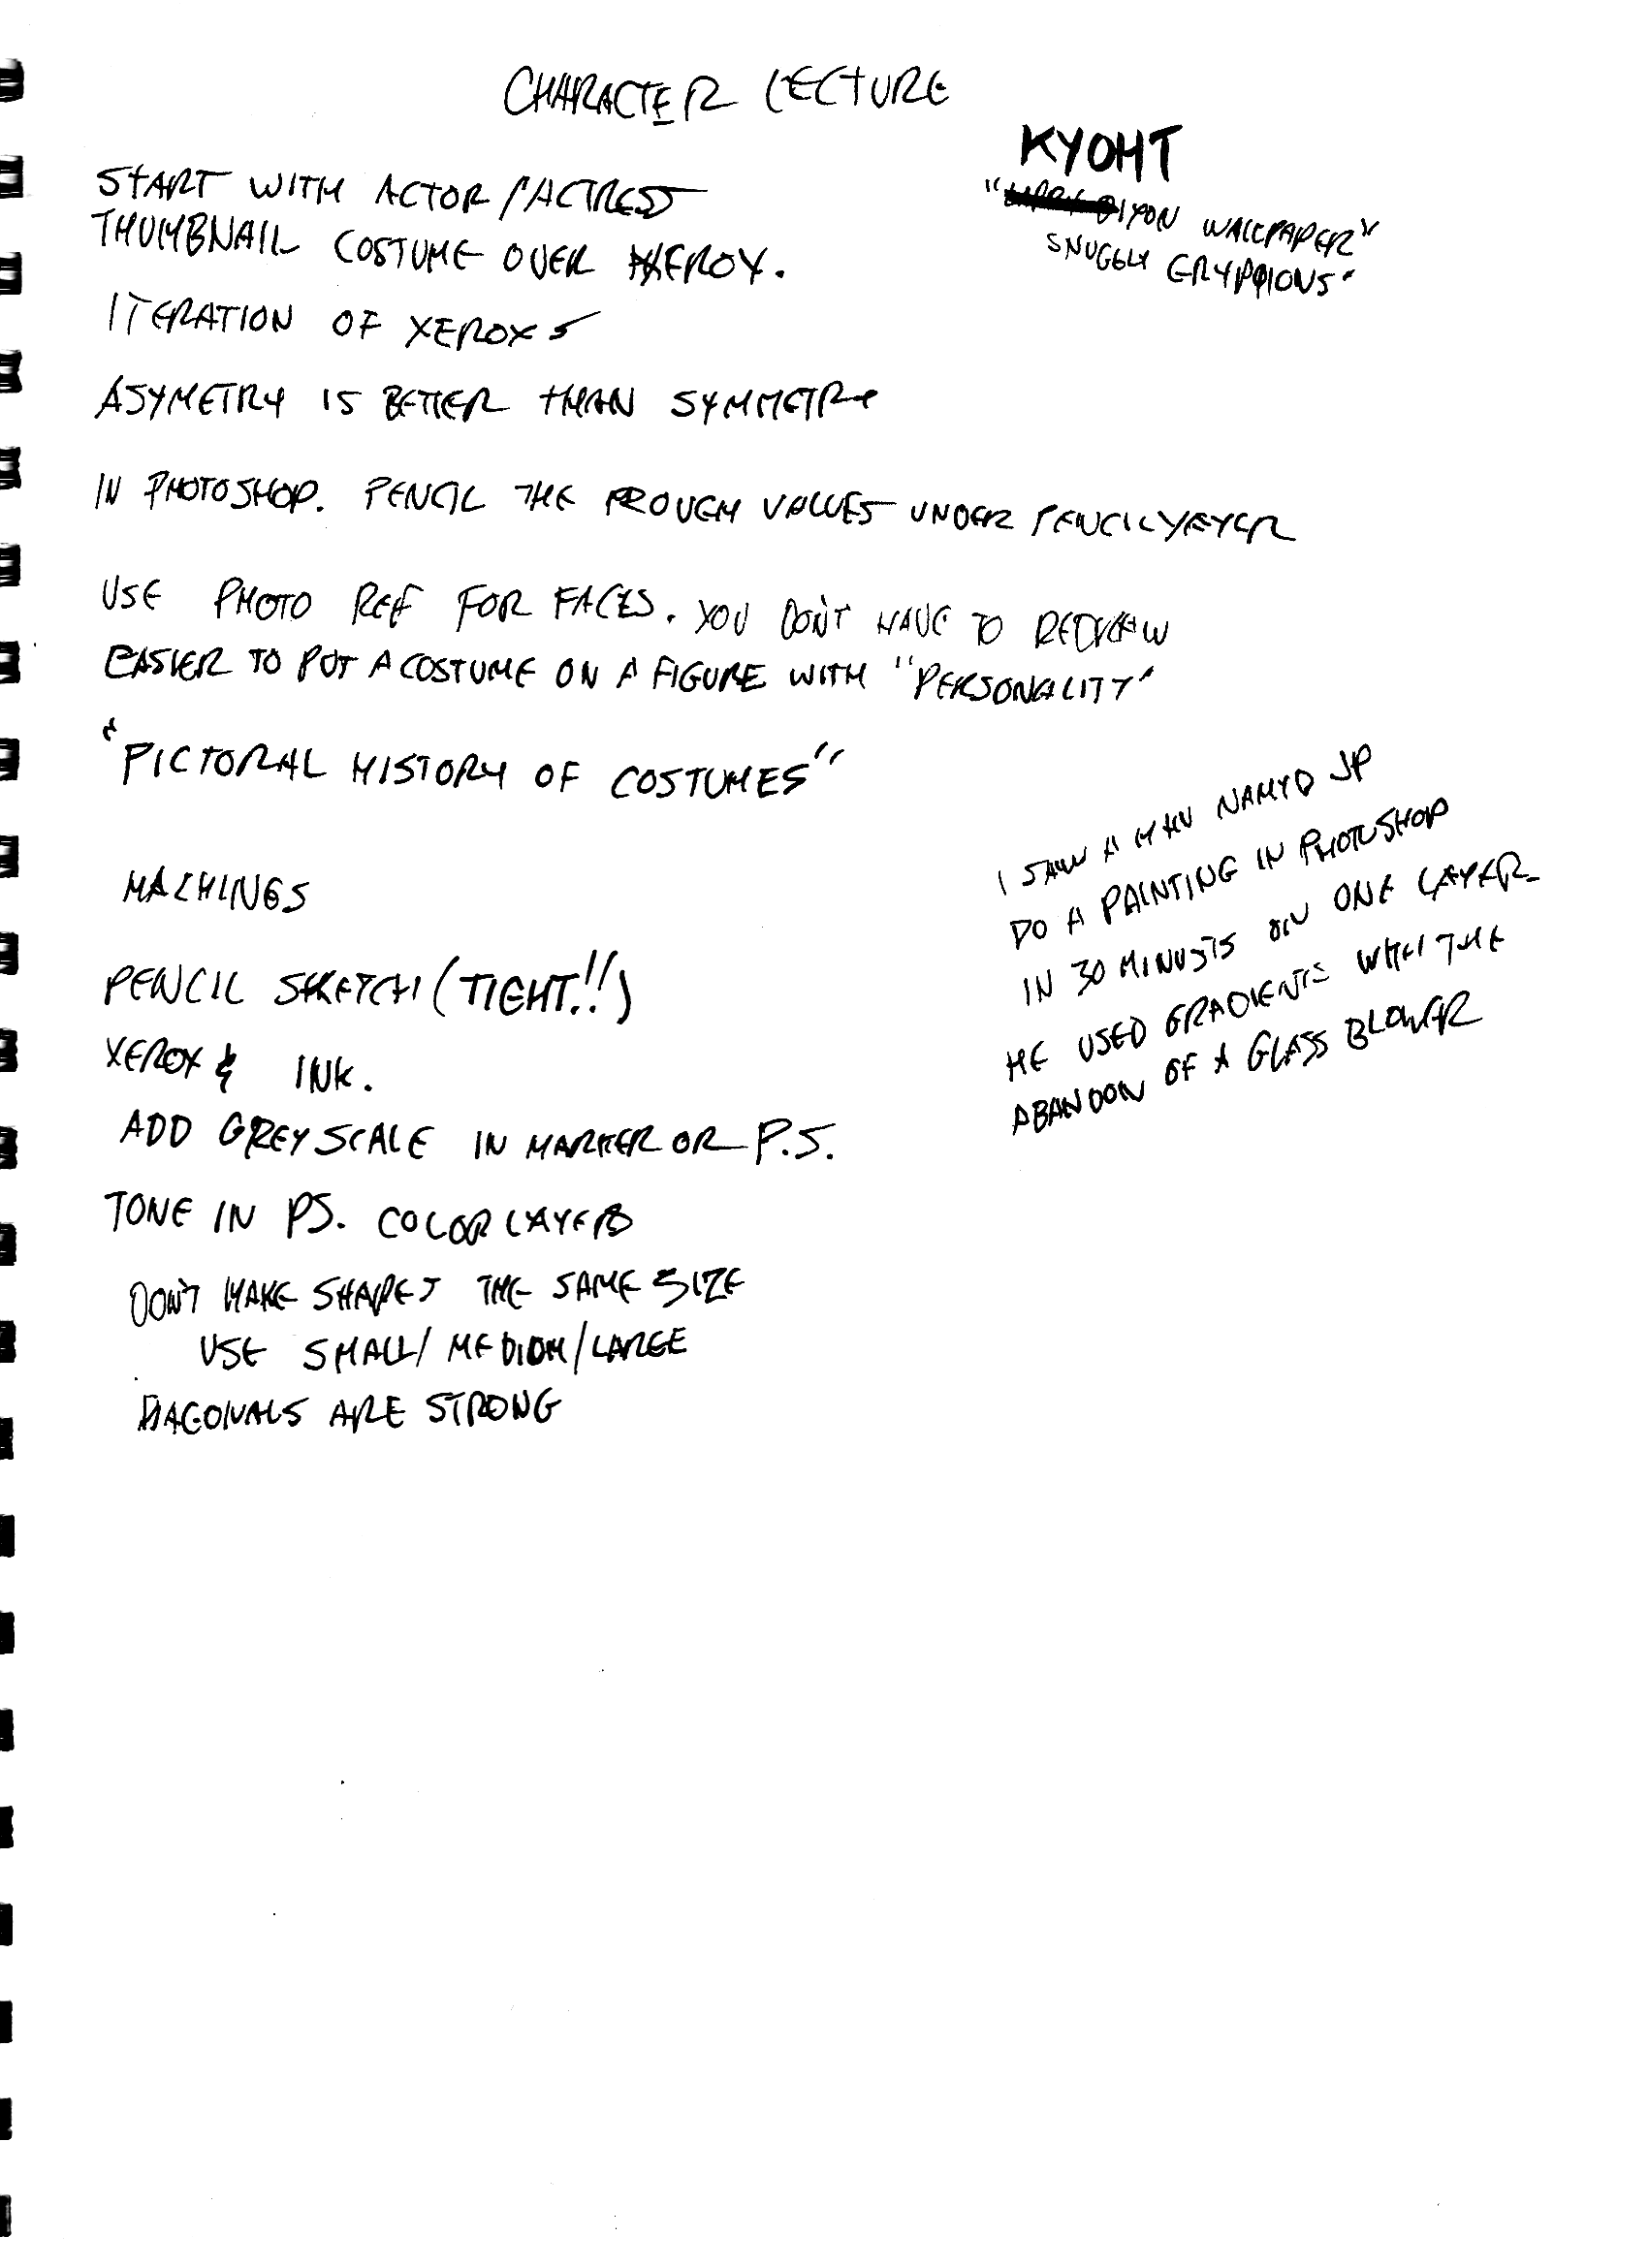 CHARACTER LECTURE
KYOHT
WALLPAPER"
SNUGGLY GRYPHONS"
START WITH ACTOR/ACTRESS
THUMBNAIL COSTUME OVER XEROX.
ITERATION OF XEROXS
ASYMETRY IS BETTER THAN SYMMETRY
IN PHOTOSHOP. PENCIL THE ROUGH VALUES UNDER PENCIL
USE PHOTO REF FOR FACES. YOU DON'T HAVE TO REDRAW
EASIER TO PUT A COSTUME ON A FIGURE WITH "PERSONALITY"
"PICTORAL HISTORY OF COSTUMES"
MACHINGS
PENCIL SKETCH (TIGHT!!)
XEROX & INK.
ADD GREYSCALE IN MARKER OR P.S.
TONE IN PS. COLOR LAYERS
DON'T MAKE SHAPES THE SAME SIZE
USE SMALL/MEDIUM/LARGE
DIAGONALS ARE STRONG
I SAW A MAN NAMYD JP
DO A PAINTING IN PHOTOSHOP
IN 30 MINUSTS ON ONE LAYER-
HE USED GRADIENTS WITH THE
ABANDON OF A GLASS BLOWER